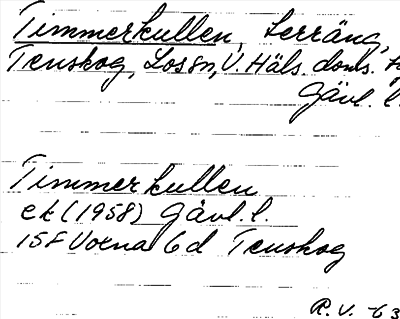 Timmerkullen, Lerräng,
Tenskog, Lossn, V. Häls. doms.
Gävl. l.
Timmerkullen
ek (1958) Gävl. l.
15F Voxna 6d Tenskog
R. V. -63